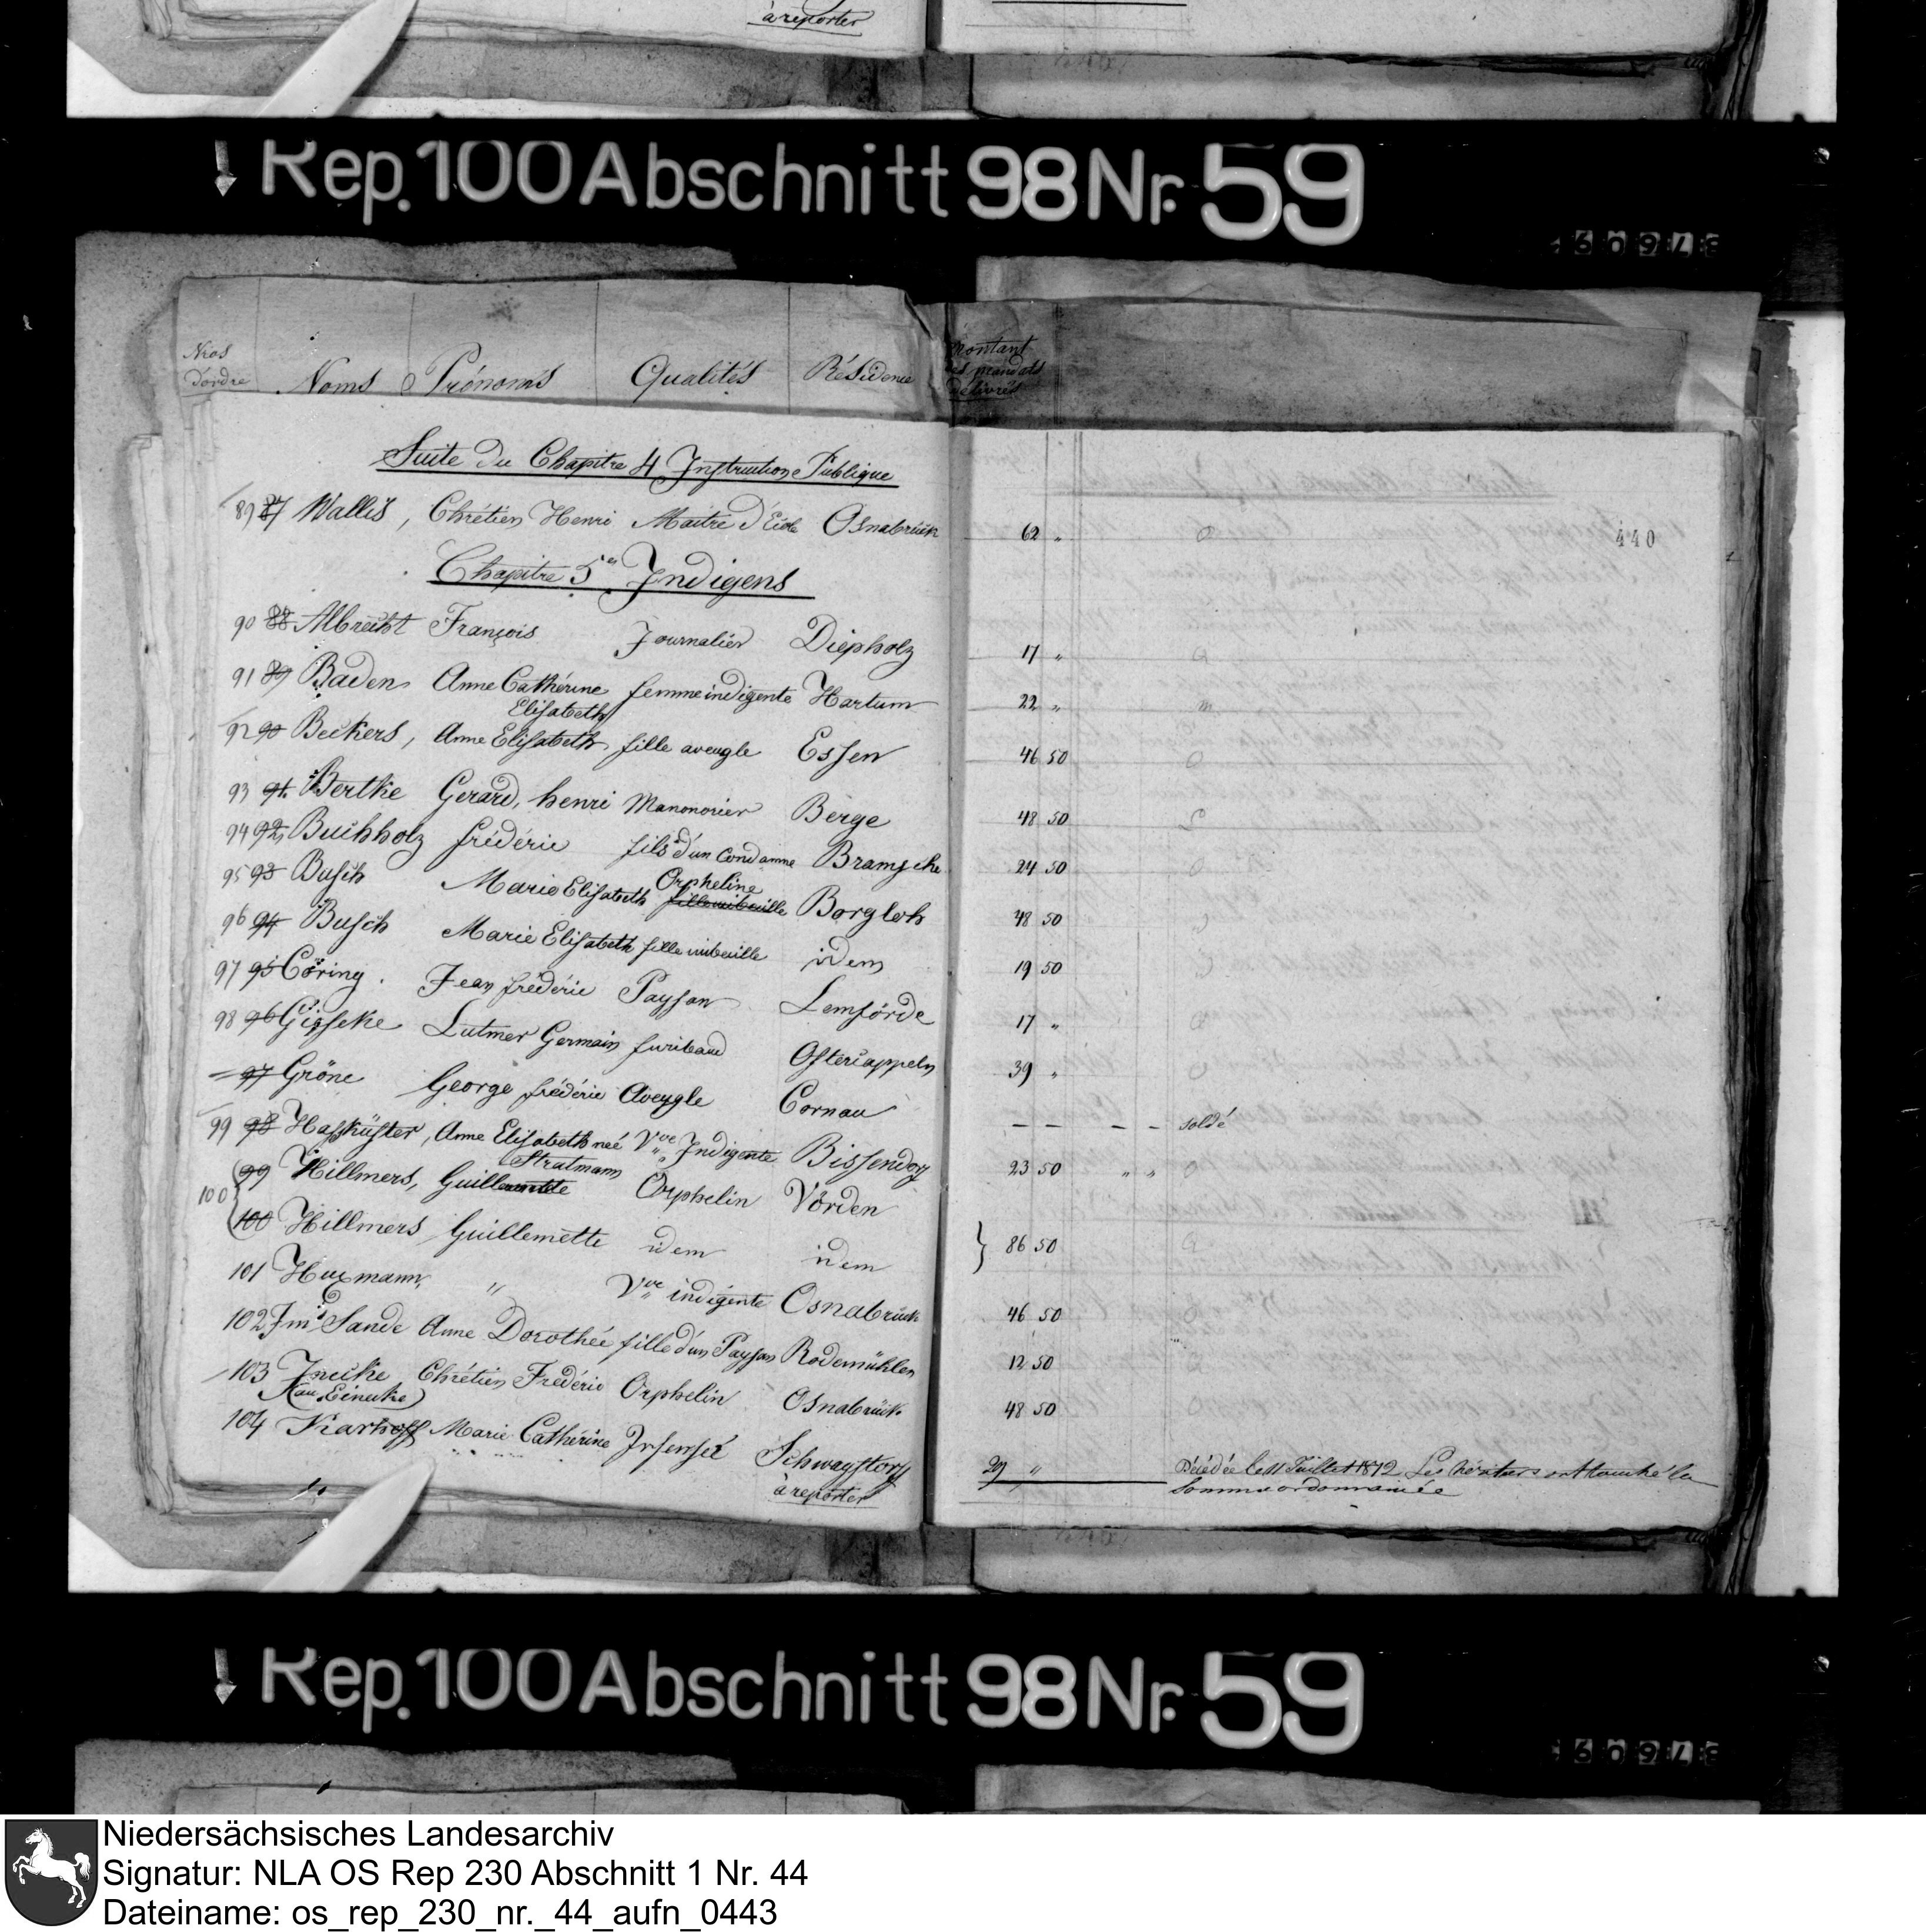 à reporter
Rep. 100 Abschnitt 98 Nr. 59
Nros d'ordre Noms Prénoms Qualités Résidence Montant des mandats délivrés
Suite du Chapitre 4 Instruction Publique
89 87 Wallis, Chrétien Henri Maitre d'École Osnabrück 62 "
440
Chapitre 5 Indigens
90 88 Albrecht François Journalier Diepholz 17 "
91 89 Baden Anne Cathérine femme indigente Hartum 22 "
Elisabeth
92 90 Beckers, Anne Elisabeth fille aveugle Essen 46 50
93 91 Bertke Gerard, henri Manonorier Berge 48 50
94 92 Buchholz frédéric fils d'un Condamne Bramsche 24 50
Orpheline
95 93 Busch Marie Elisabeth Borgloh 48 50
96 94 Busch Marie Elisabeth fille imbecille idem 19 50
97 95 Cöring. Jean frédéric Paysan Lemförde 17 "
98 96 Gieseke Lutmer Germain furibaud Ostercappeln 39 "
97 Gröne George frédéric Aveugle Cornau — — — — soldé
99 98 Hasküster, Anne Elisabeth neé Vve Indigente Bissendorf 23 50 " "
Stratmann
99 Hillmers, Guillemette Orphelin Vörden
100
100 Hillmers Guillemette idem idem } 86 50
101 Huxmann, " Vve indigente Osnabrück 46 50
102 Im Sande Anne Dorothée fille d'un Paysan Rodemühlen 12 50
103 Inecke Chrétien Frédéric Orphelin Osnabrück 48 50
(au Einecke)
104 Karhoff Marie Cathérine Insensée Schwagstorf 29 " Décédée le 11 Juillet 1812. Les héritiers ont touché la
somme ordonnancée
à reporter
Rep. 100 Abschnitt 98 Nr. 59
Niedersächsisches Landesarchiv
Signatur: NLA OS Rep 230 Abschnitt 1 Nr. 44
Dateiname: os_rep_230_nr._44_aufn_0443